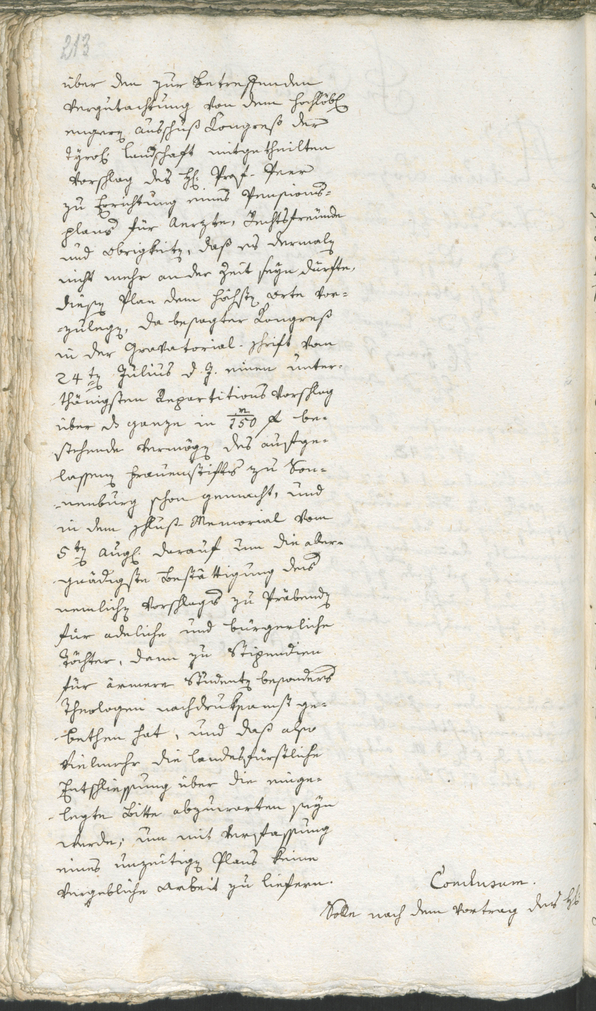 213
über den zur Betreffenden
Vergutachtung von dem hochlöbl
engern Ausschuß Congreß der
Tyrol: Landschaft mitgetheilten
Vorschlag des H: Prof. Peer
zu Errichtung eines Pensions-
plans für Aerzte, Rechtsfreunde
und Obrigkeitn, daß es dermaln
nicht mehr an der Zeit seyn dürfte,
diesen Plan dem höchstn Orte vor-
-zulegn, da besagter Congreß
in der Gravatorial-schrift vom
24tn Julius d. J. einen unter-
thänigsten Repartitions Vorschlag
über ds ganze in n/150 f be-
stehende Vermögn des aufge-
lassenn Frauenstifts zu Son-
-nenburg schon gemacht, und
in dem schluß Memorial vom
5tn Aug: darauf um die aller-
gnädigste Bestättigung des
nemlichn Vorschlags zu Präbendn
für adeliche und bürgerliche
Töchter, dann zu Stipendien
für ärmere Studentn besonders
Theologen nachdruksamst ge-
bethen hat, und daß also
vielmehr die landesfürstliche
Entschliessung über die einge-
legte Bitte abzuwarten seyn
werde; um mit Verfassung
eines unzeitign Plans keine
vergebliche Arbeit zu liefern.
Conclusum.
Solle nach dem Vortrag des H: